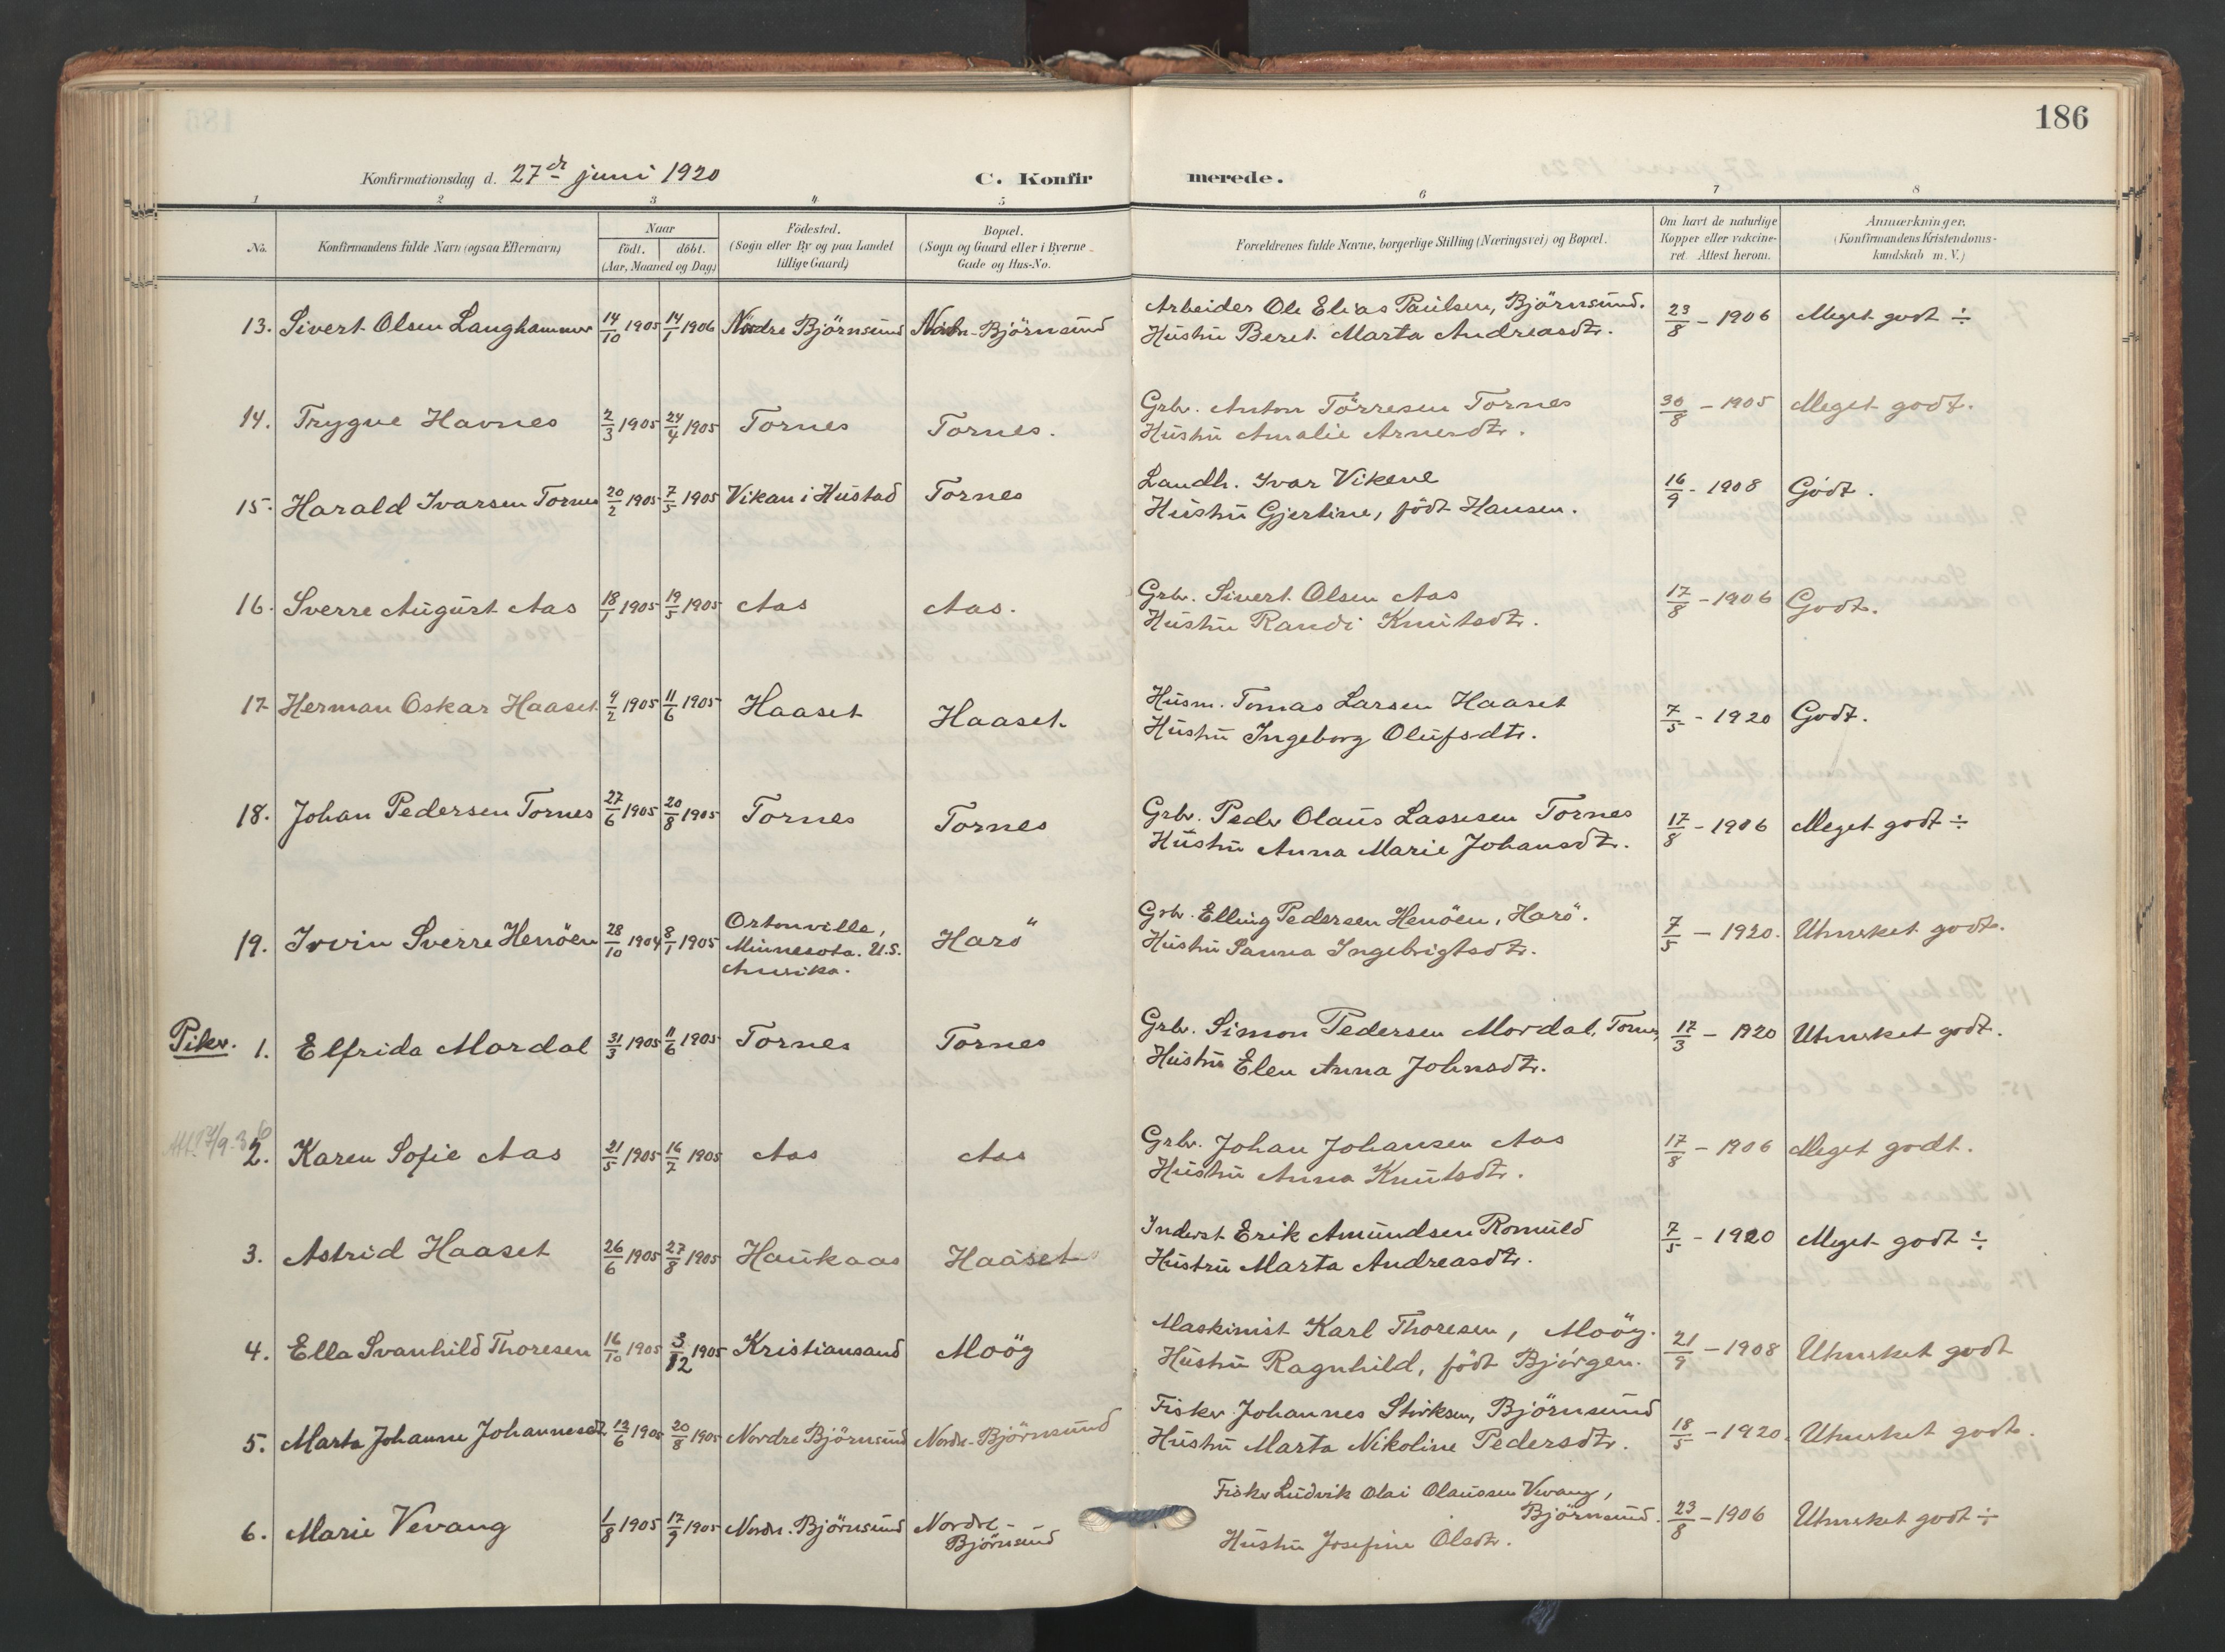 186
Konfirmationsdag d. 27de juni 1920
C. Konfirmerede.
1 2 3 4 5 6 7 8
No.
Konfirmandens fulde Navn (ogsaa Efternavn)
Naar
födt. döbt.
(Aar, Maaned og Dag)
Födested.
(Sogn eller By og paa Landet
tillige Gaard)
Bopæl.
(Sogn og Gaard eller i Byerne
Gade og Hus-No.
Forældrenes fulde Navne, borgerlige Stilling (Næringsvei) og Bopæl.
Om havt de naturlige
Kopper eller vakcine-
ret. Attest herom.
Anmærkninger.
(Konfirmandens Kristendoms-
kundskab m. V.)
13. Sivert Olsen Langhammer 14/10 1905 14/1 1906 Nordre Björnsund Nordr. Björnsund Arbeider Ole Elias Paulsen, Björnsund. 23/8 - 1906 Meget godt ÷
Hustru Beret Marta Andreasdtr.
14. Trygve Havnes 2/3 1905 24/4 1905 Tornes Tornes. Grbr. Anton Törresen Tornes 30/8 - 1905 Meget godt.
Hustru Amalie Arnesdtr.
15. Harald Ivarsen Tornes 20/2 1905 7/5 1905 Vikan i Hustad Tornes Landh. Ivar Vikene 16/9 - 1908 Godt.
Hustru Gjertine, född Hansen.
16. Sverre August Aas 18/1 1905 19/5 1905 Aas Aas. Grbr. Sivert Olsen Aas 17/8 - 1906 Godt.
Hustru Randi Knutsdtr.
17 Herman Oskar Haaset 9/2 1905 11/6 1905 Haaset Haaset. Husm. Tomas Larsen Haaset 7/5 - 1920 Godt.
Hustru Ingeborg Olufsdtr.
18. Johan Pedersen Tornes 27/6 1905 20/8 1905 Tornes Tornes Grbr. Peder Olaus Lassesen Tornes 17/8 - 1906 Meget godt ÷
Hustru Anna Marie Johansdtr.
19. Irvin Sverre Henöen 28/10 1904 8/1 1905 Ortonville, Harö Grbr. Elling Pedersen Henöen, Harö. 7/5 - 1920. Utmerket godt.
Minnesota. U.S. Hustru Sanna Ingebrigtsdtr.
Amerika.
Piker. 1. Elfrida Mordal 31/3 1905 11/6 1905 Tornes Tornes Grbr. Simon Pedersen Mordal, Tornes 17/3 - 1920 Utmerket godt.
Hustru Elen Anna Johnsdtr.
2. Karen Sofie Aas 21/5 1905 16/7 1905 Aas Aas Grbr. Johan Johansen Aas 17/8 - 1906 Meget godt.
Hustru Anna Knutsdtr.
3. Astrid Haaset 26/6 1905 27/8 1905 Haukaas Haaset Inderst Erik Amundsen Romuld 7/5 - 1920 Meget godt ÷
Hustru Marta Andreasdtr.
4. Ella Svanhild Thoresen 16/10 1905 3/12 1905 Kristiansand Moög Maskinist Karl Thoresen, Moög. 21/9 - 1908 Utmerket godt
Hustru Ragnhild, född Bjørgen.
5. Marta Johanne Johannesdtr. 12/6 1905 20/8 1905 Nordre Björnsund Nordr. Björnsund Fisker Johannes Björnsund 18/5 - 1920. Utmerket godt.
Hustru Marta Nikoline Pedersdtr.
6. Marie Vevang 1/8 1905 17/9 1905 Nordr. Björnsund Nordre- Fisker Ludvik Olai Olaussen Vevang,
Björnsund Björnsund. 23/8 - 1906 Utmerket godt ÷
Hustru Josefine Olsdtr.